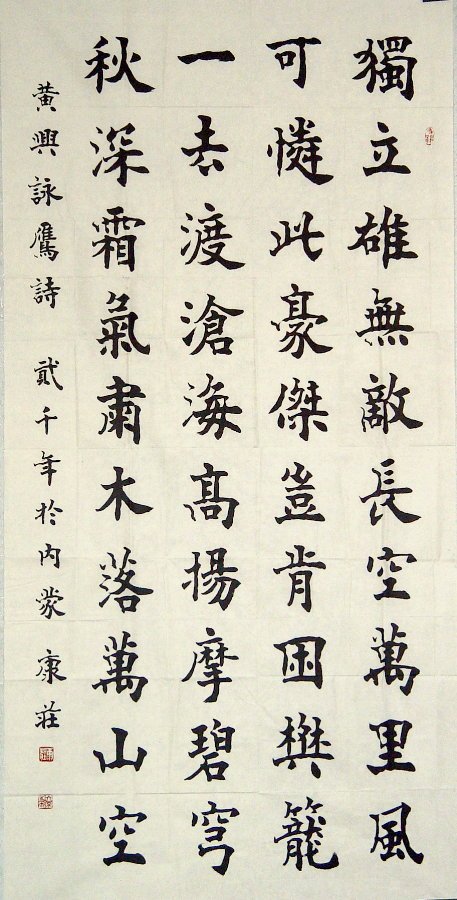 獨立雄無敵長空萬里風
可憐此豪傑豈肯困樊籠
一去渡滄海高揚摩碧穹
秋深霜氣肅木落萬山空
黃興詠鷹詩 貳千年於內蒙 康莊